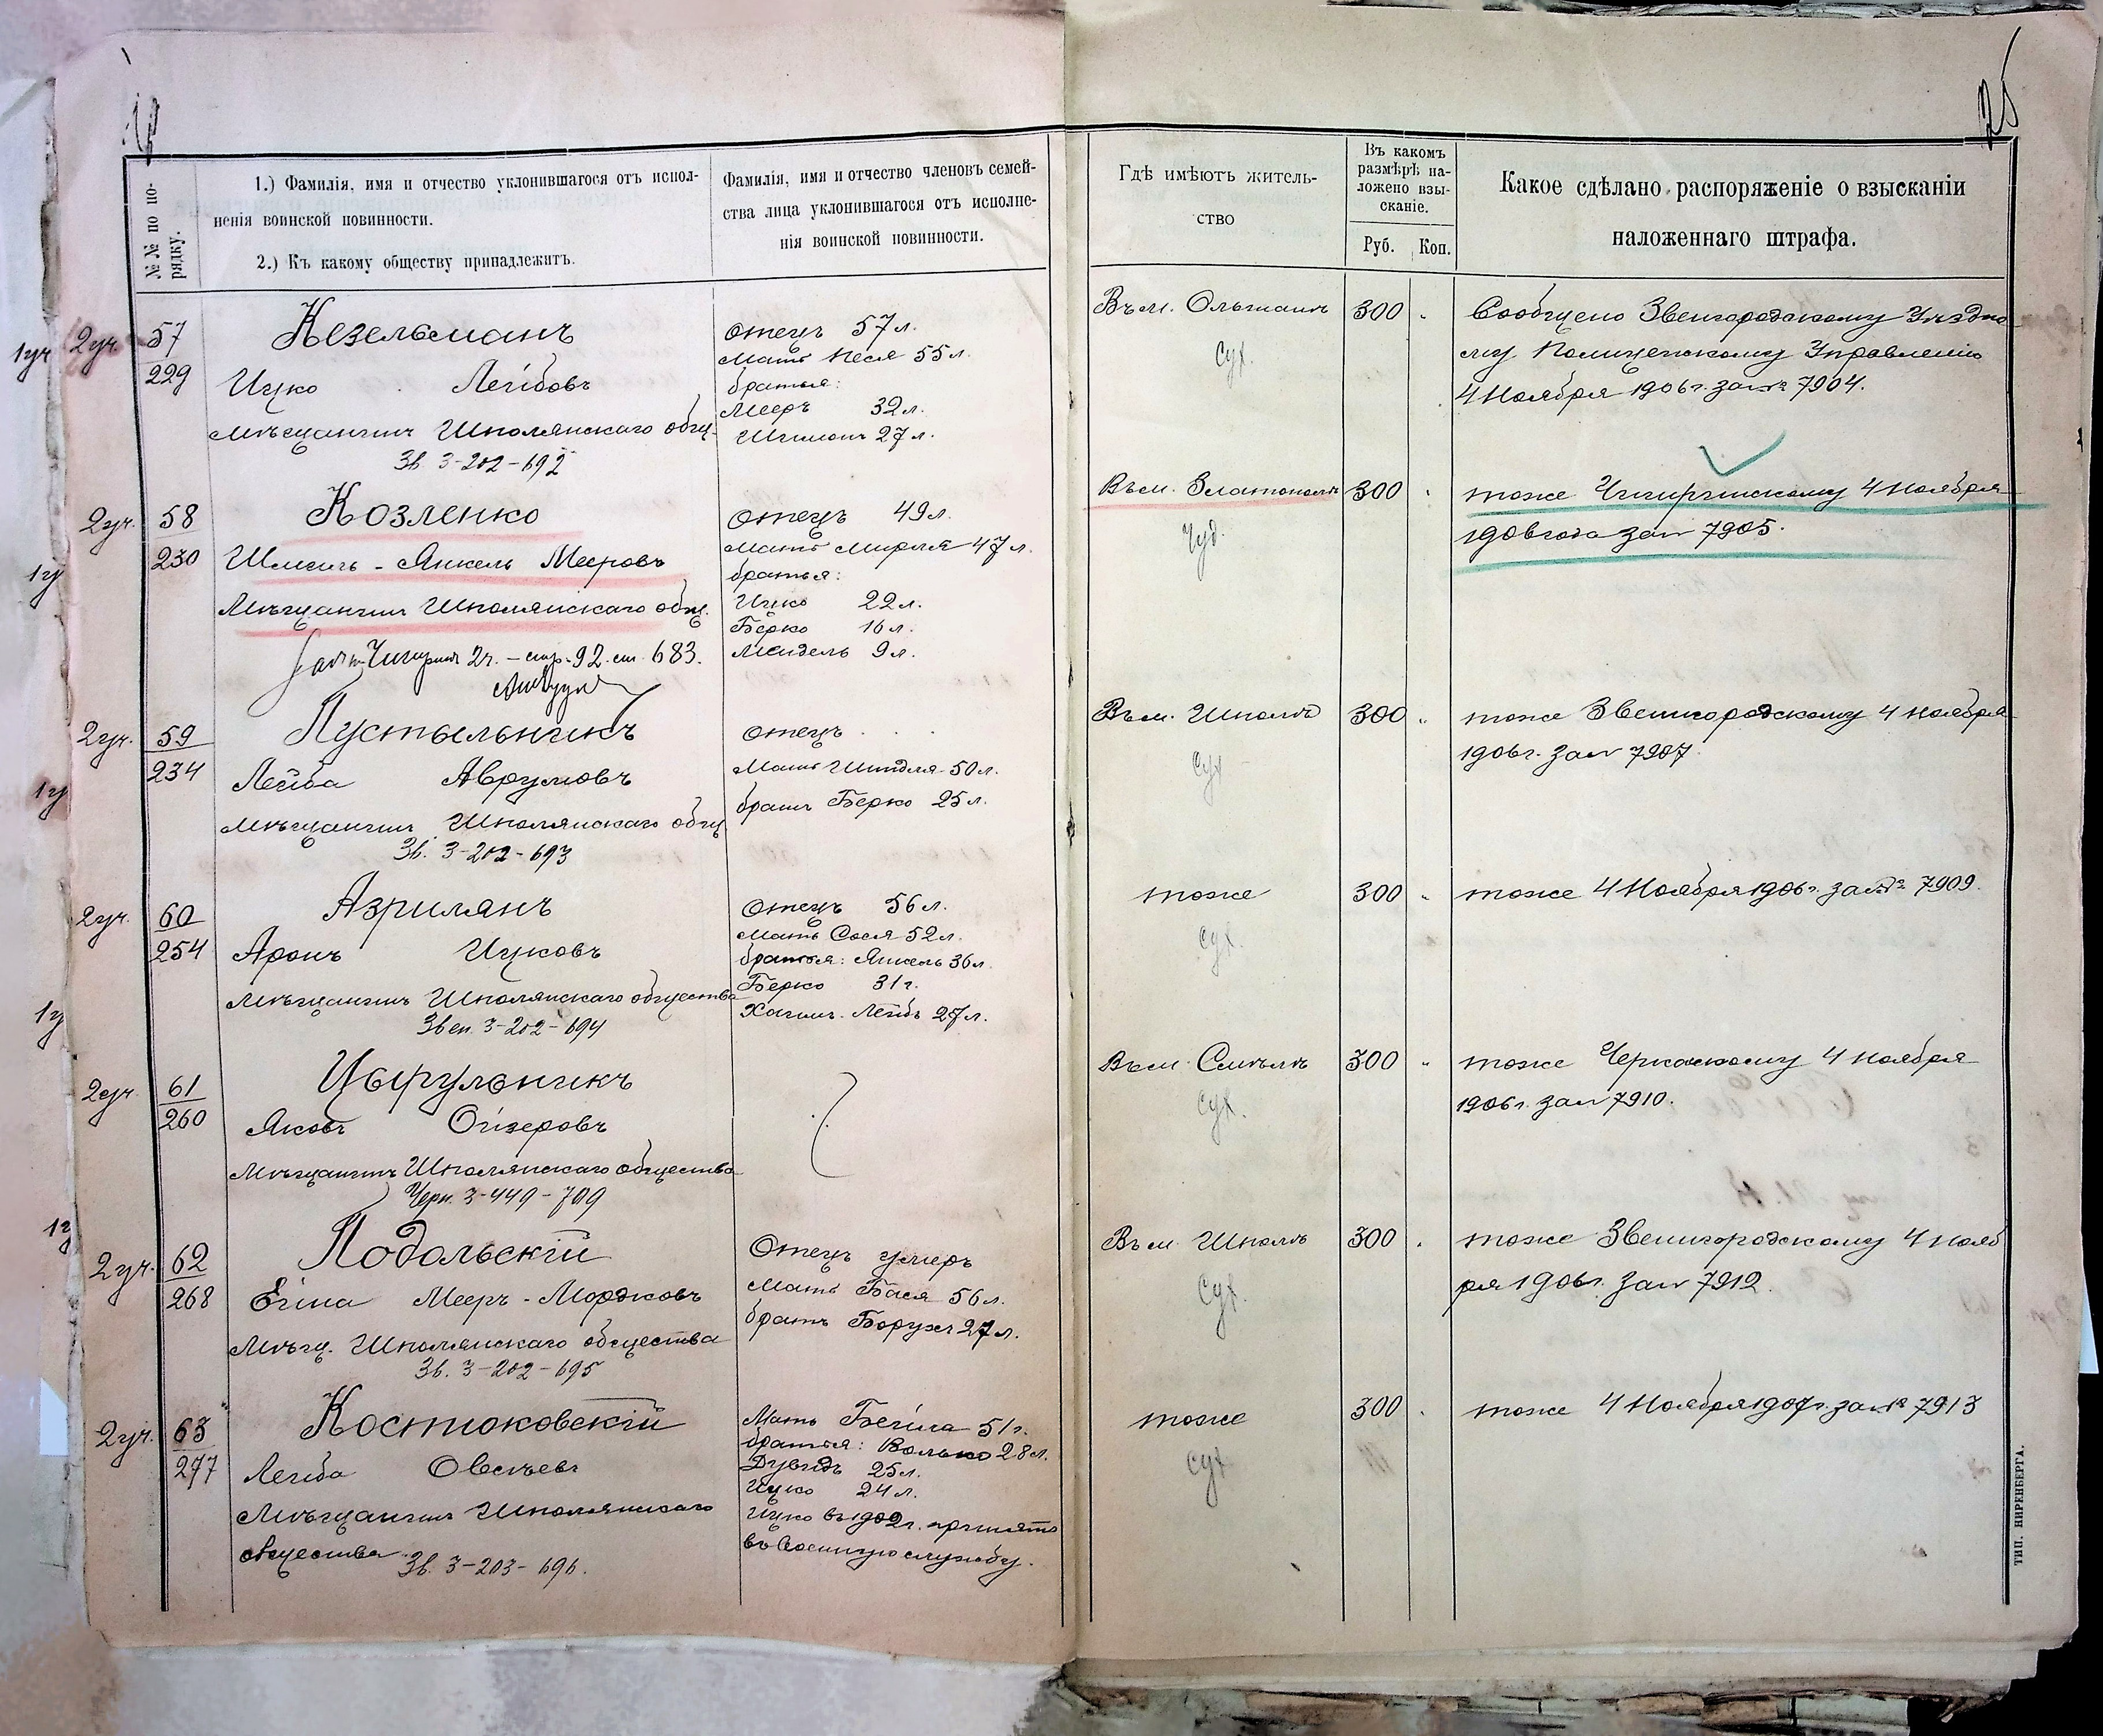 25
№№ по по-
рядку.
1.) Фамилія, имя и отчество уклонившагося отъ испол-
ненія воинской повинности.
2.) Къ какому обществу принадлежитъ.
Фамилія, имя и отчество членовъ семей-
ства лица уклонившагося отъ исполне-
нія воинской повинности.
Гдѣ имѣютъ житель-
ство
Въ какомъ
размѣрѣ на-
ложено взы-
сканіе.
Руб. Коп.
Какое сдѣлано распоряженіе о взысканіи
наложеннаго штрафа.
1уч 2уч. 57
229
Кезельманъ
Ицко Лейбовъ
Мѣщанинъ Шполянскаго общ.
Зв. 3-202-692
отецъ 57 л.
Мать Песя 55 л.
братья:
Мееръ 32 л.
Шимонъ 27 л.
Въ м. Ольшанѣ
300
Сообщено Звенигородскому Уѣздно-
му Полицейскому Управленію
4 Ноября 1906 г. за № 7904.
2уч. 58
1у 230
Козленко
Шмилъ-Янкель Мееровъ
Мѣщанинъ Шполянскаго общ.
Чигирин 2ч. - стр. 92. ст. 683.
отецъ 49 л.
Мать Мирля 47 л.
братья:
Ицко 22 л.
Берко 16 л.
Мендель 9 л.
Въ м. Златополѣ
300
тоже Чигиринскому 4 Ноября
1906 года за № 7905.
2уч. 59
1у 234
Пустыльникъ
Лейба Аврумовъ
Мѣщанинъ Шполянскаго общ.
Зв. 3-202-693
отецъ . .
Мать Шиндля 50 л.
братъ Берко 25 л.
Въ м. Шполѣ
300
тоже Звенигородскому 4 ноября
1906 г. за № 7907.
2уч. 60
254
Азрилянъ
Аронъ Ицковъ
Мѣщанинъ Шполянскаго общества
1у Звен. 3-202-694
Отецъ 56 л.
Мать Сося 52 л.
братья: Янкель 36 л.
Берко 31 г.
Хаимъ-Лейбъ 27 л.
тоже
300
тоже 4 Ноября 1906 г. за № 7909.
2уч. 61
260
Цырульникъ
Яковъ Ойзеровъ
Мѣщанинъ Шполянскаго общества
Черк. 3-449-709
?
Въ м. Смѣлѣ
300
тоже Черкасскому 4 ноября
1906 г. за № 7910.
1у
2уч. 62
268
Подольскій
Мееръ-Мордковъ
Мѣщ. Шполянскаго общества
Зв. 3-202-695
Отецъ умеръ
Мать Бася 56 л.
братъ Борухъ 27 л.
Въ м. Шполѣ
300
тоже Звенигородскому 4 нояб
ря 1906 г. за № 7912.
2уч. 63
277
Костюковскій
Лейба Овсѣевъ
Мѣщанинъ Шполянскаго
общества Зв. 3-203-696.
Мать Бейла 51 г.
братья: Волько 28 л.
Дувидъ 25 л.
Ицко 24 л.
Ицко въ 1902 г. принятъ
въ военную службу.
тоже
300
тоже 4 Ноября 1907 г. за № 7913
ТИП. НИРЕНБЕРГА.